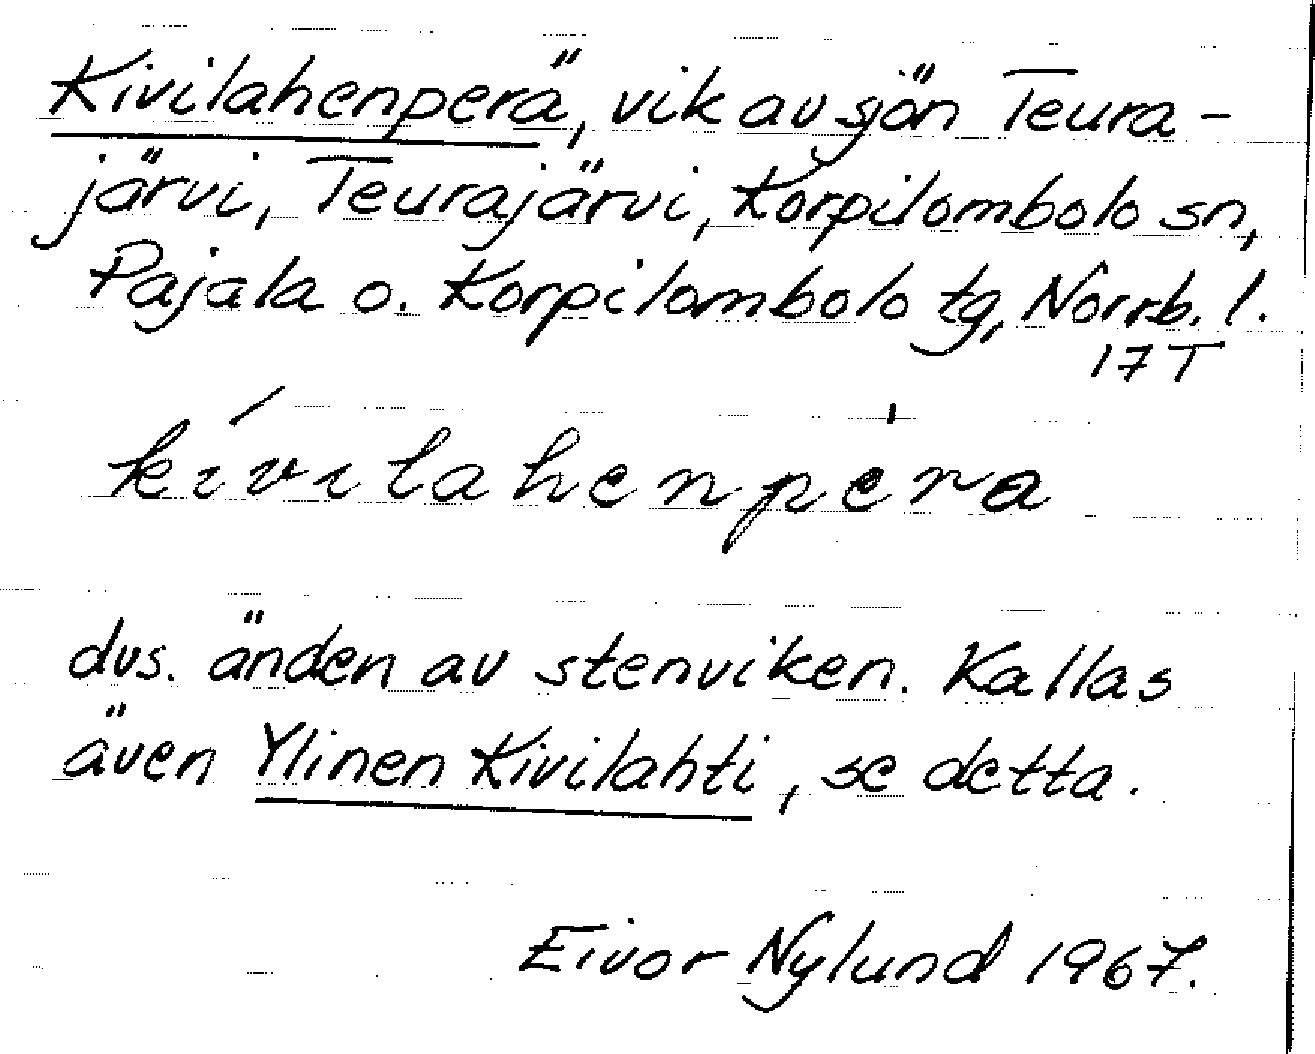 Kivilahenperä, vik av sjön Teura-
järvi, Teurajärvi, Korpilombolo sn,
Pajala o. Korpilombolo tg, Norrb. l.
17 T
kívilahenpèra
dvs. änden av stenviken. Kallas
även Ylinen Kivilahti, se detta.
Eivor Nylund 1967.